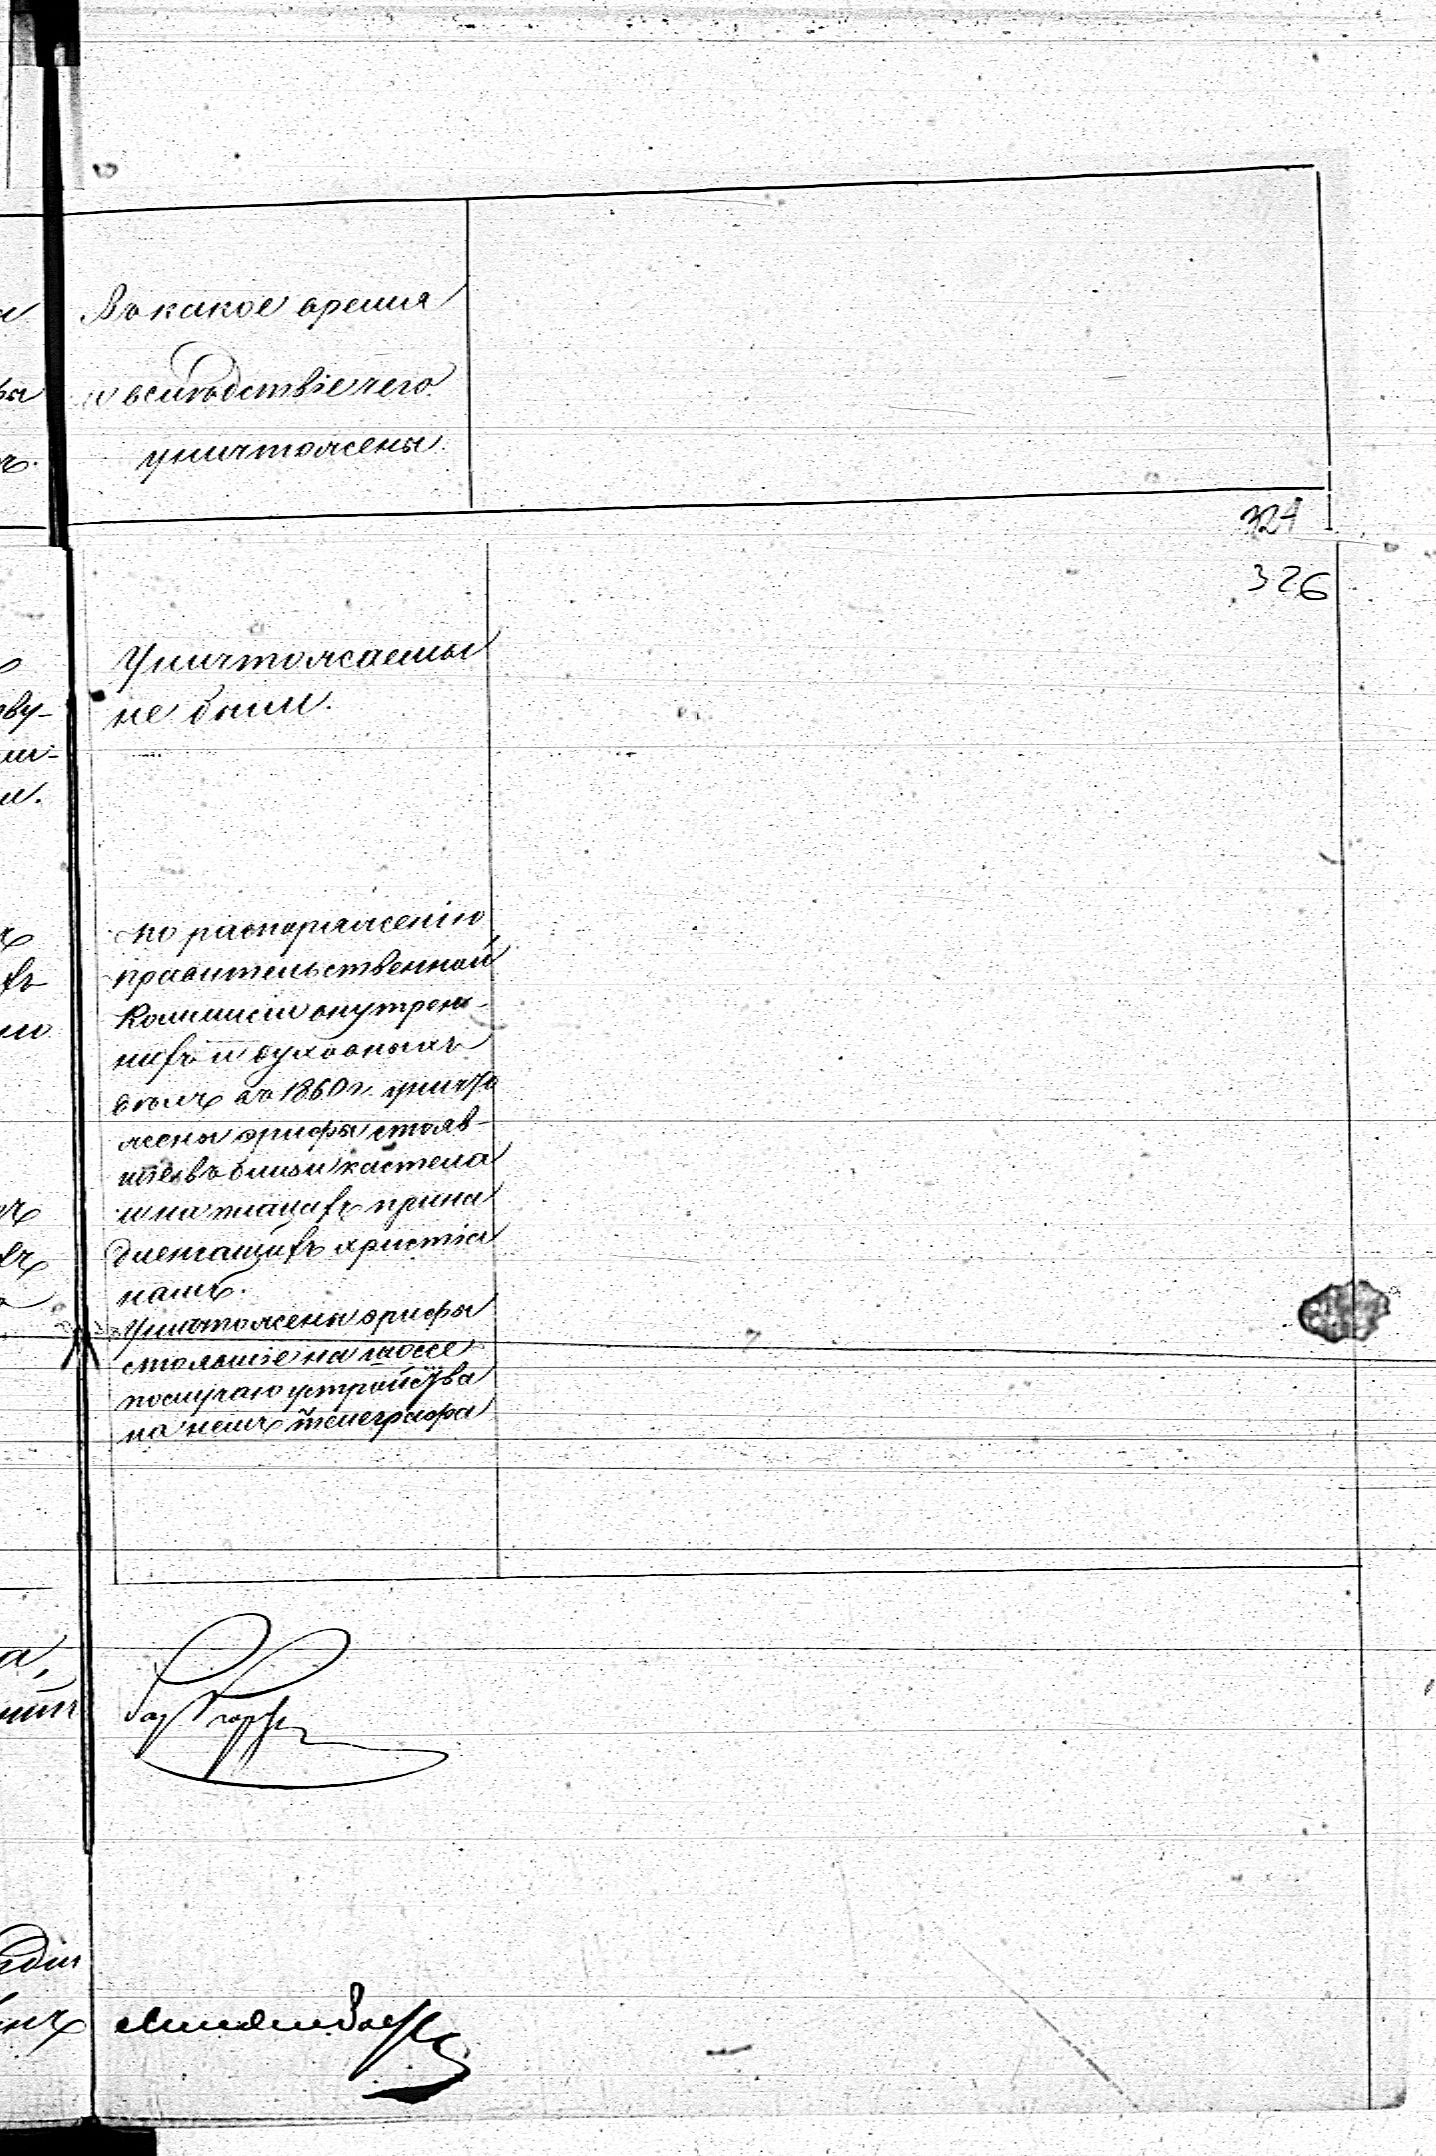 Въ какое время
и вслѣдствіе чего
уничтожены.
324
326
Уничтожаемы
не были.
по распоряженію
правительственной
Коммисіи внутрен-
нихъ и духовныхъ
дѣлъ въ 1860 г. уничто
жены эрифы стояв-
шіе въ близи костела
и на плацахъ прина
длежащихъ христіа
намъ.
Уничтожены эрифы
стоявшіе на шоссе
по случаю устройства
на немъ телеграфа